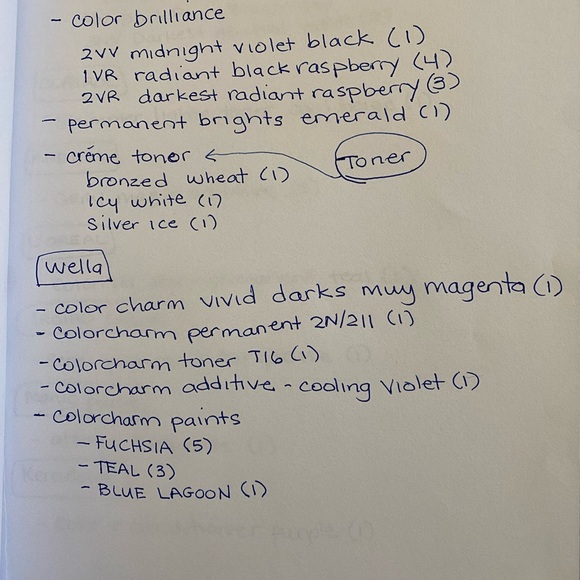 - color brilliance
2VV midnight violet black (1)
1VR radiant black raspberry (4)
2VR darkest radiant raspberry (3)
- permanent brights emerald (1)
- créme toner ← Toner
bronzed wheat (1)
Icy white (1)
Silver ice (1)
Wella
- color charm vivid darks muy magenta (1)
- Colorcharm permanent 2N/211 (1)
- Colorcharm toner T16 (1)
- Colorcharm additive - cooling violet (1)
- Colorcharm paints
- FUCHSIA (5)
- TEAL (3)
- BLUE LAGOON (1)